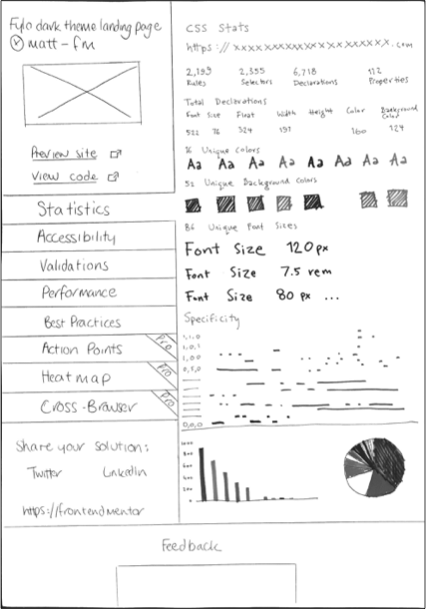 Fylo dark theme landing page
matt-fm
Preview site
View code
Statistics
Accessibility
Validations
Performance
Best Practices
Action Points
Pro
Heat map
Pro
Cross-Browser
Pro
Share your solution:
Twitter LinkedIn
https://frontendmentor
CSS Stats
2,355 6,718 112
Rules Selectors Declarations Properties
Total Declarations
Font Size Float Width Height Color Background Color
76 324 197 160 124
Unique Colors
Aa Aa Aa Aa Aa Aa Aa Aa
Unique Background Colors
Unique Font Sizes
Font Size 120px
Font Size 7.5 rem
Font Size 80 px ...
Specificity
0,0,0
Feedback